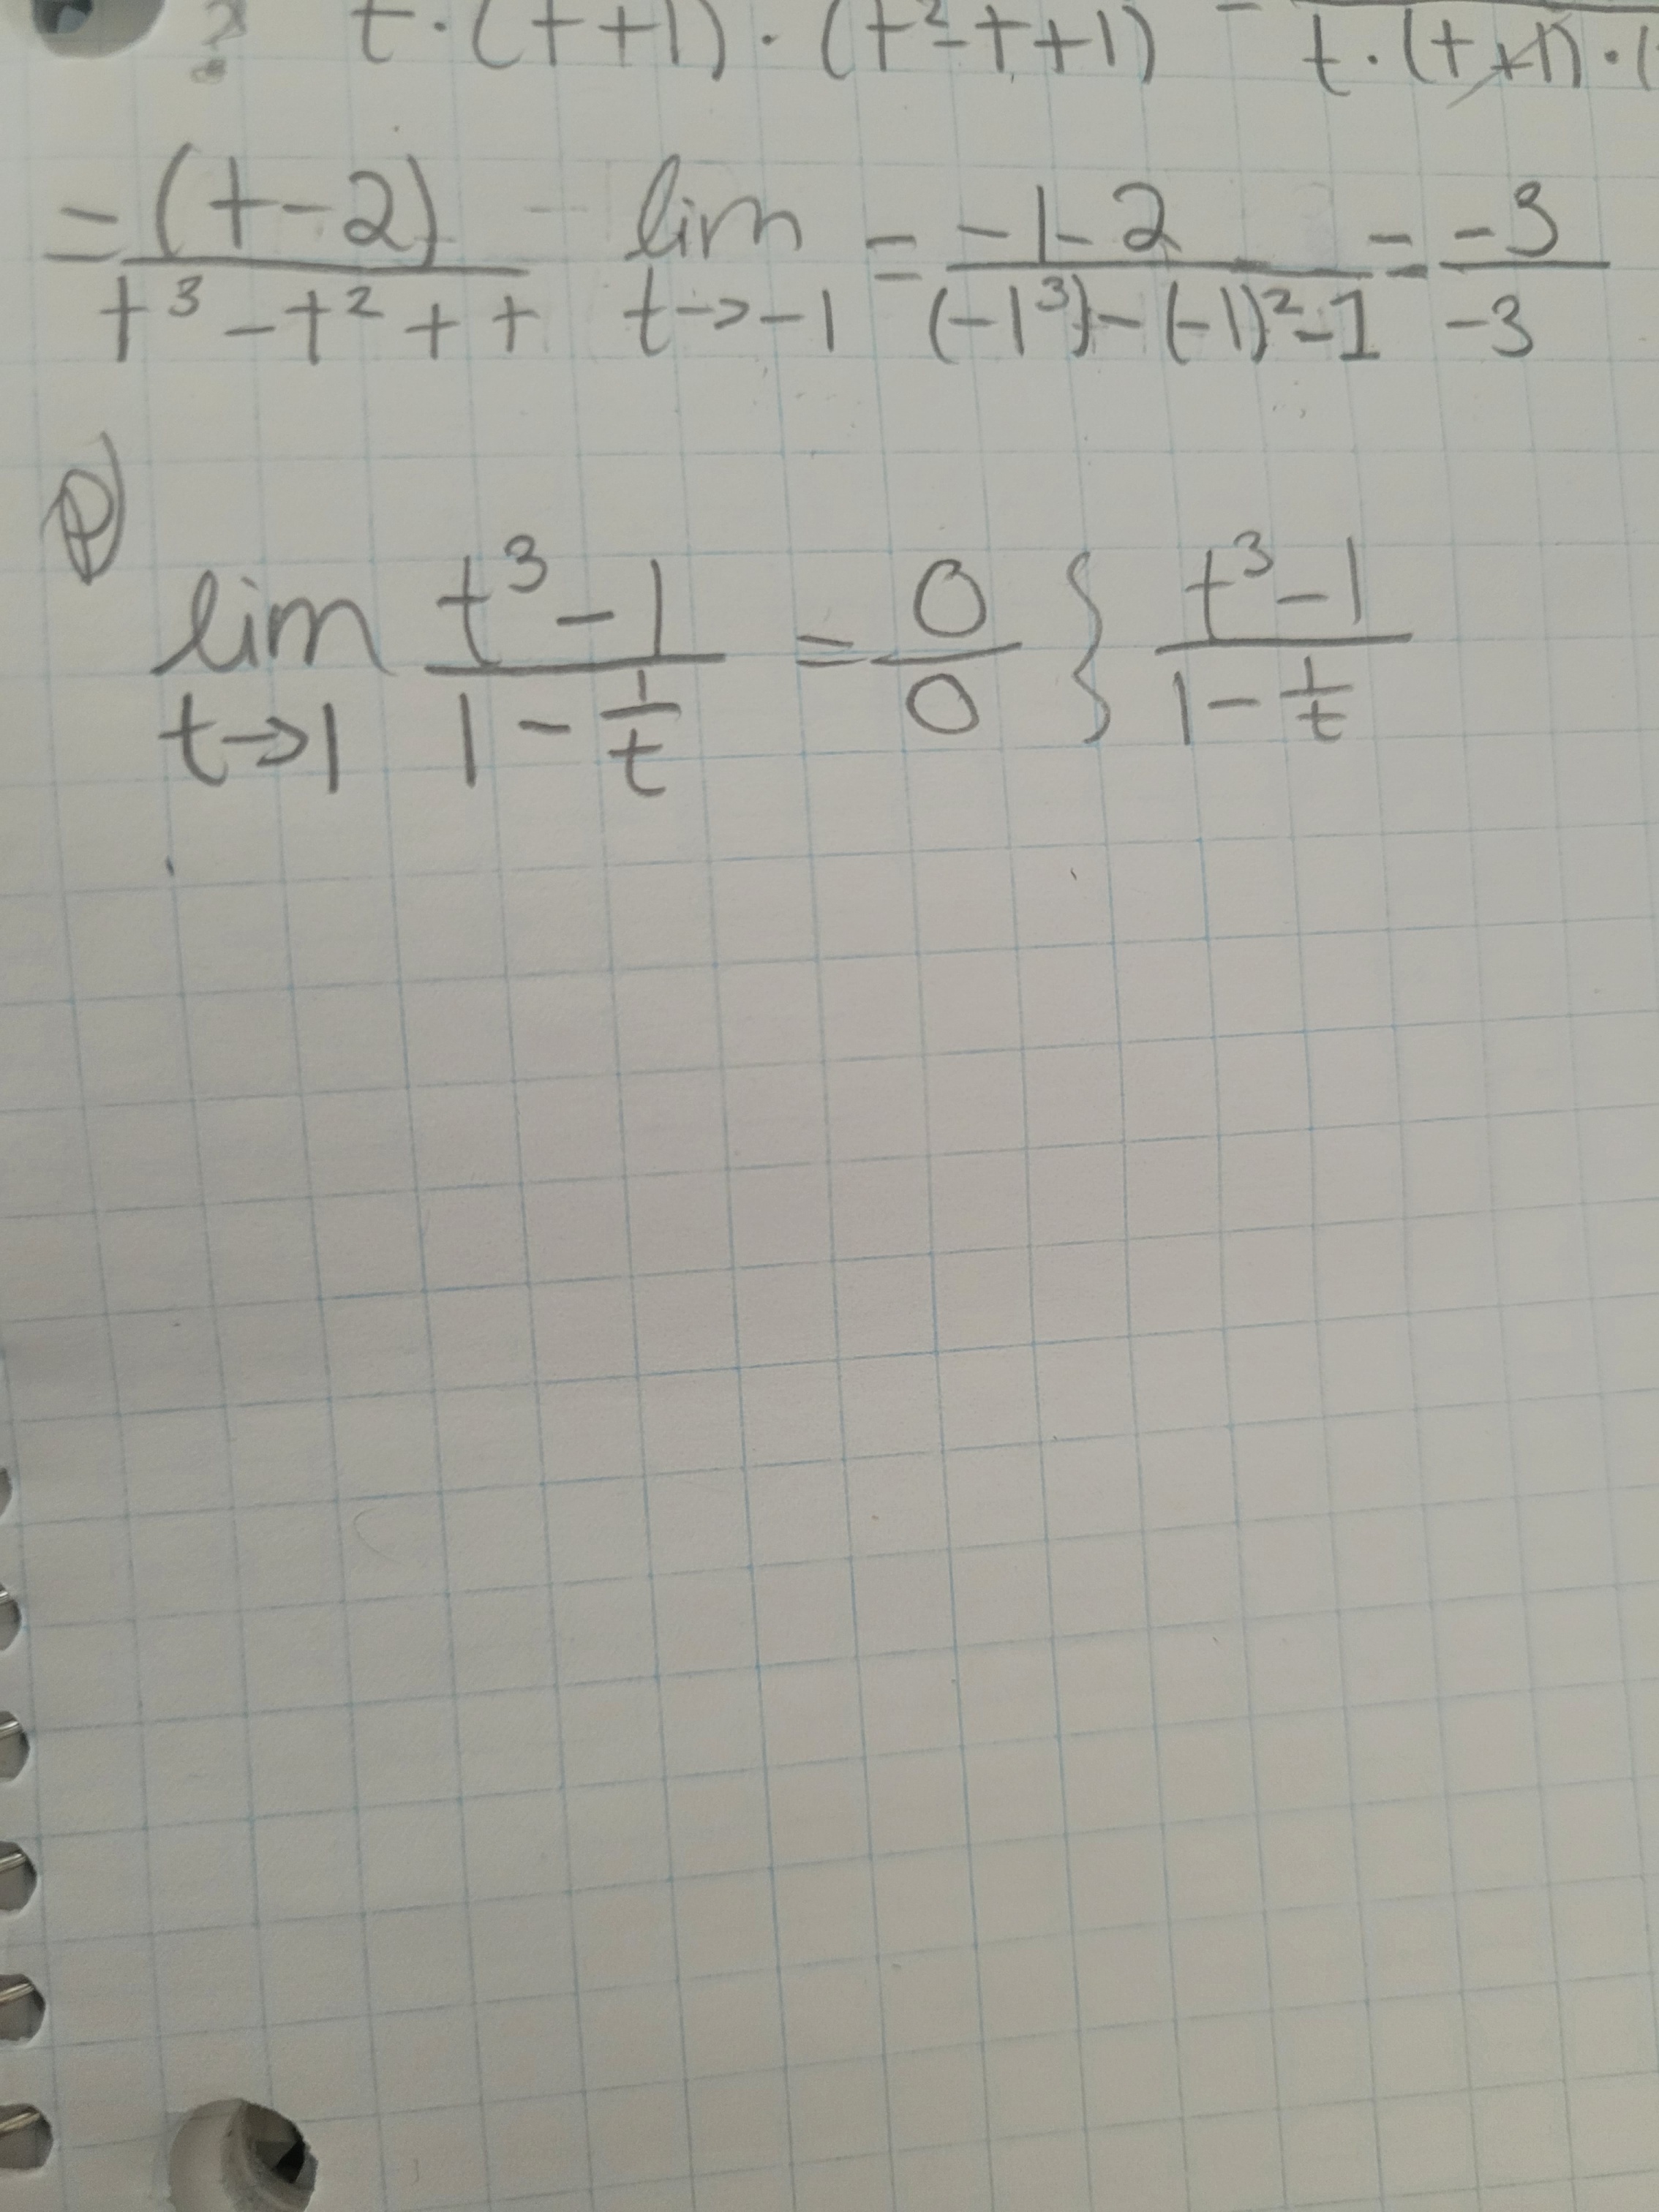 t·(t+1)·(t²-t+1) = t·(t+1)·(
= (t-2) / t³-t²+t lim t→-1 = -1-2 / (-1³)-(-1)²-1 = -3 / -3
lim t→1 t³-1 / 1-1/t = 0/0 } t³-1 / 1-1/t